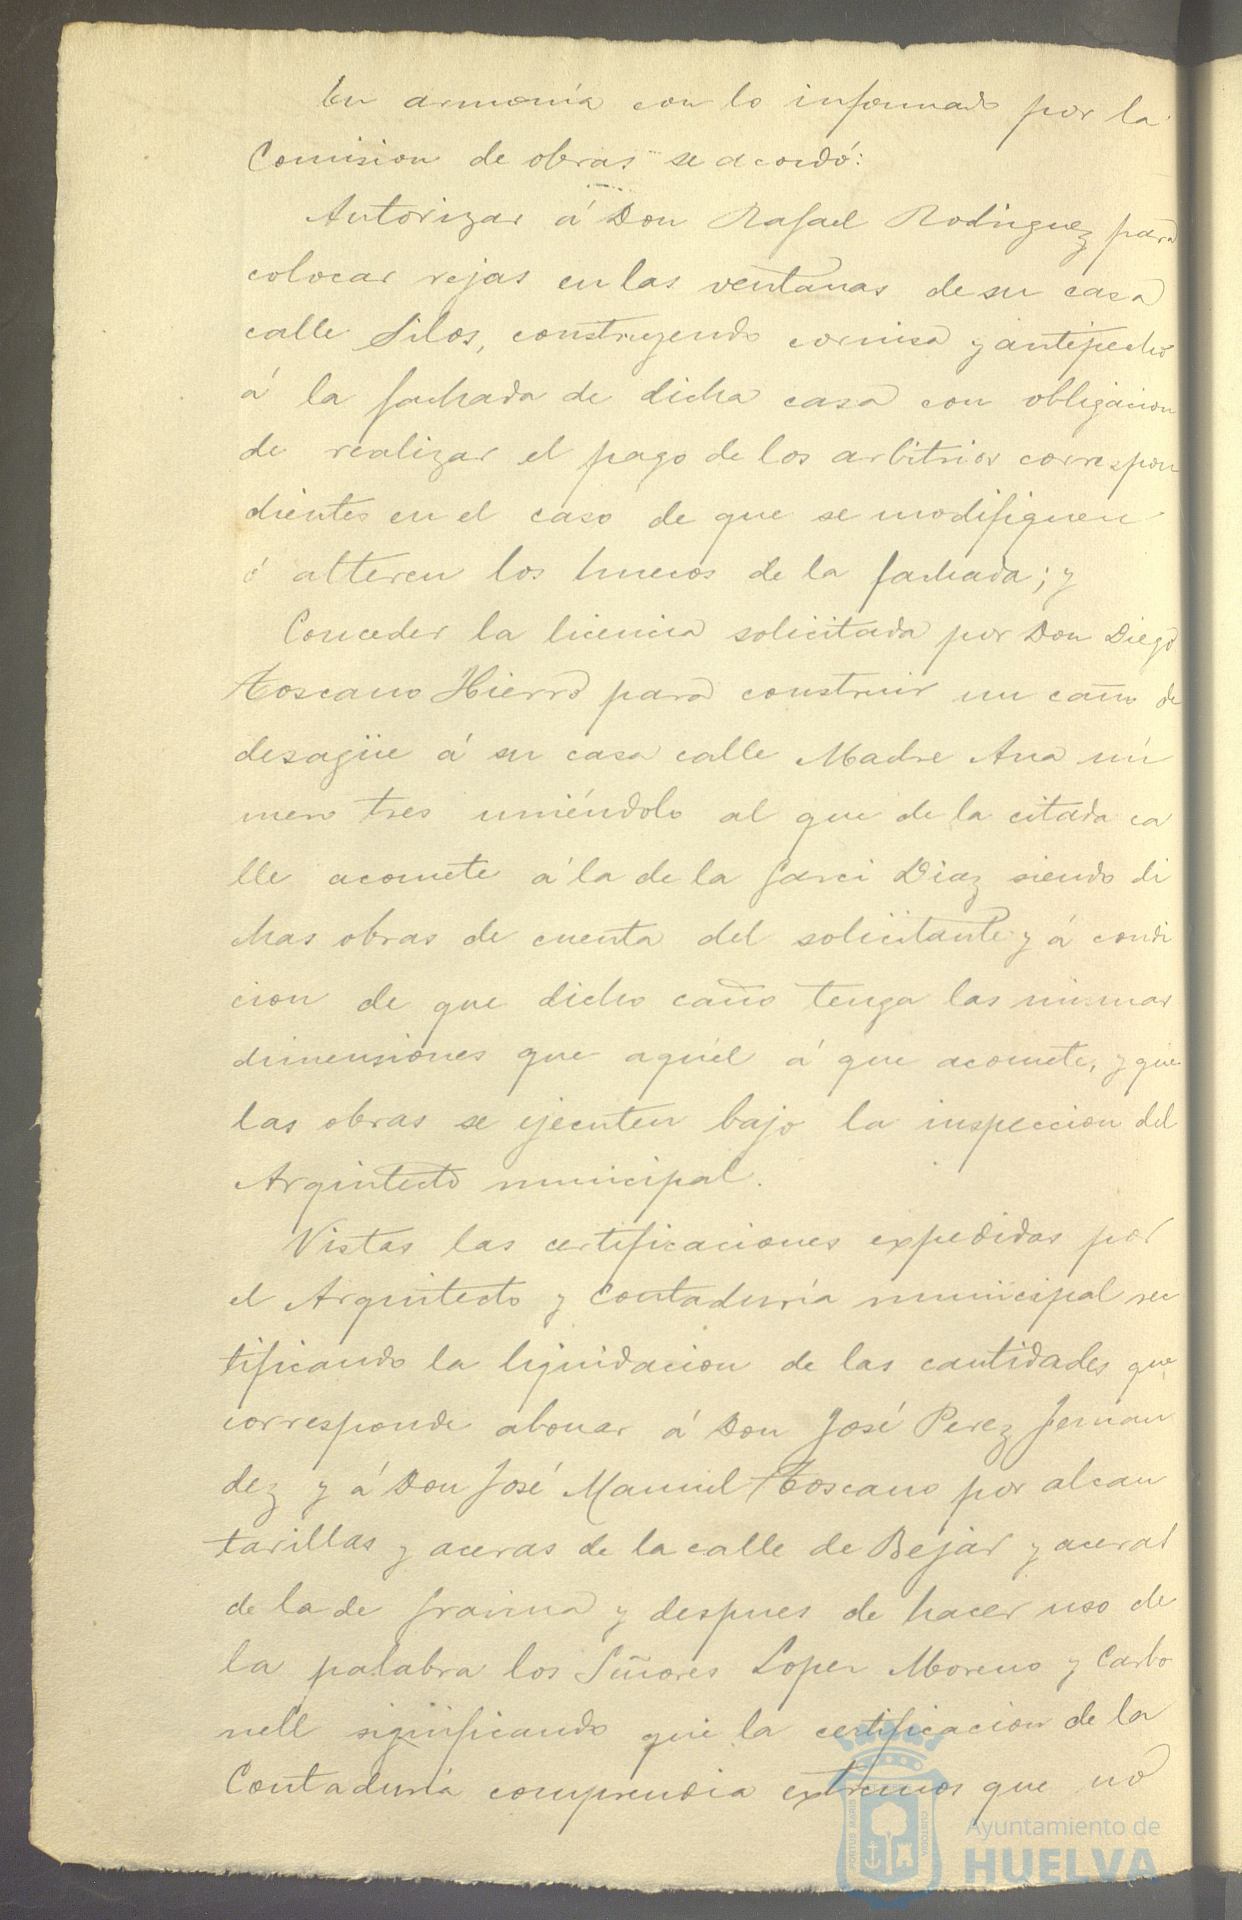 En armonía con lo informado por la
Comision de obras se acordó:
Autorizar á Don Rafael Rodriguez para
colocar rejas en las ventanas de su casa
calle Silos, construyendo cornisa y antipecho
á la fachada de dicha casa con obligacion
de realizar el pago de los arbitrios correspon
dientes en el caso de que se modifiquen
ó alteren los huecos de la fachada; y
Conceder la licencia solicitada por Don Diego
Toscano Hierro para construir un caño de
desagüe á su casa calle Madre Ana nú
mero tres uniéndolo al que de la citada ca
lle acomete á la de la Garci Diaz siendo di
chas obras de cuenta del solicitante y á condi
cion de que dicho caño tenga las mismas
dimensiones que aquél á que acomete, y que
las obras se ejecuten bajo la inspeccion del
Arquitecto municipal.
Vistas las certificaciones expedidas por
el Arquitecto y Contaduría municipal rec
tificando la liquidacion de las cantidades que
corresponde abonar á Don José Perez Fernan
dez y á Don José Manuel Toscano por alcan
tarillas y aceras de la calle de Bejar y aceras
de la de Gravina y despues de hacer uso de
la palabra los Señores Lopez Moreno y Carbo
nell significando que la certificacion de la
Contaduría comprendia extremos que no
PORTUS MARIS CUSTODIA
Ayuntamiento de
HUELVA